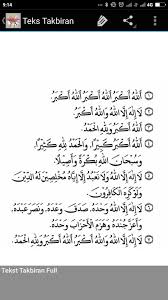 9:14
Teks Takbiran
اَللهُ أَكْبَرُ اَللهُ أَكْبَرُ اَللهُ أَكْبَرُ
لَا إِلٰهَ إِلَّا اللهُ وَاللهُ أَكْبَرُ
اَللهُ أَكْبَرُ وَلِلّٰهِ الْحَمْدُ
اَللهُ أَكْبَرُ كَبِيْرًا، وَالْحَمْدُ لِلّٰهِ كَثِيْرًا،
وَسُبْحَانَ اللهِ بُكْرَةً وَأَصِيْلًا،
لَا إِلٰهَ إِلَّا اللهُ وَلَا نَعْبُدُ إِلَّا إِيَّاهُ مُخْلِصِيْنَ لَهُ الدِّيْنَ
وَلَوْ كَرِهَ الْكَافِرُوْنَ،
لَا إِلٰهَ إِلَّا اللهُ وَحْدَهُ، صَدَقَ وَعْدَهُ، وَنَصَرَ عَبْدَهُ،
وَأَعَزَّ جُنْدَهُ وَهَزَمَ الْأَحْزَابَ وَحْدَهُ،
لَا إِلٰهَ إِلَّا اللهُ وَاللهُ أَكْبَرُ، اَللهُ أَكْبَرُ وَلِلّٰهِ الْحَمْدُ
Tekst Takbiran Full